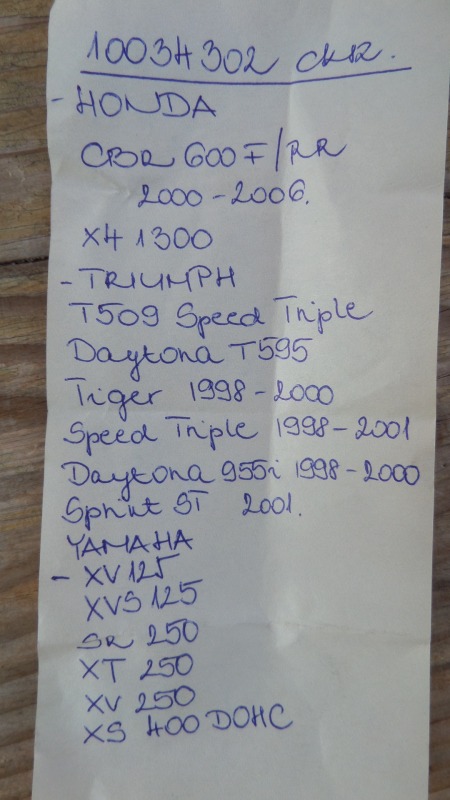 10034302 CKR.
- HONDA
CBR 600 F/RR
2000-2006.
X4 1300
- TRIUMPH
T509 Speed Triple
Daytona T595
Tiger 1998-2000
Speed Triple 1998-2001
Daytona 955i 1998-2000
Sprint ST 2001.
YAMAHA
- XV 125
XVS 125
SR 250
XT 250
XV 250
XS 400 DOHC